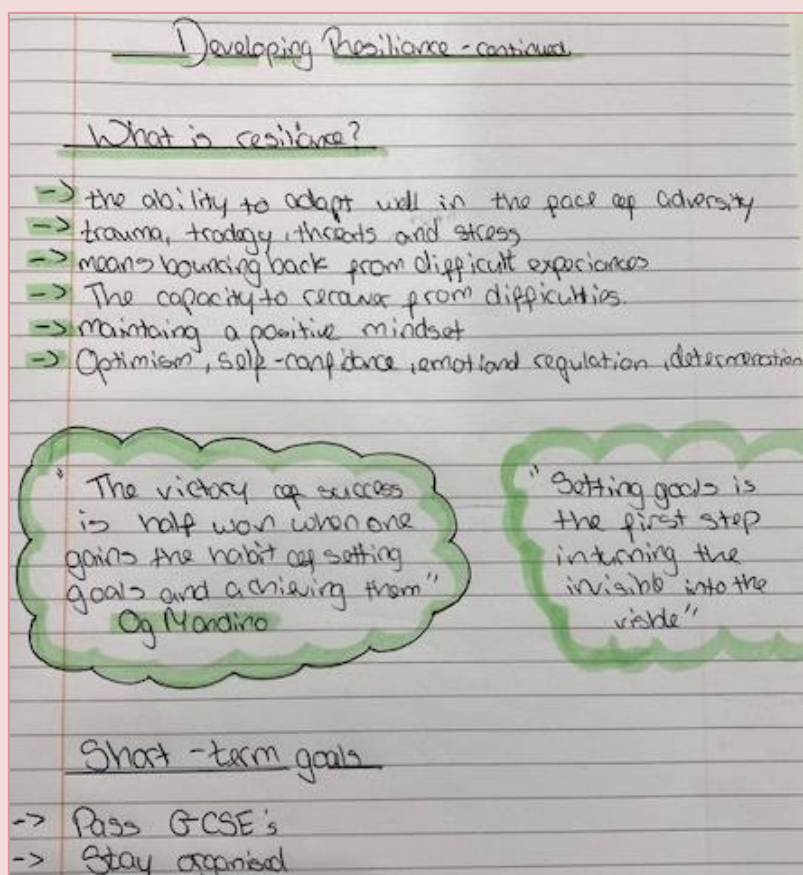 Developing Resiliance - continued
What is resiliance?
-> the ability to adapt well in the face of adversity
-> trauma, tradegy, threats and stress
-> means bouncing back from difficult experiances
-> The capacity to recover from difficulties.
-> maintaing a positive mindset
-> Optimism, self-confidance, emotional regulation, determeration
"The victory of success
is half won when one
gains the habit of setting
goals and achieving them"
Og Mandino
"Setting goals is
the first step
in turning the
invisible into the
visble"
Short-term goals
-> Pass GCSE's
-> Stay organised